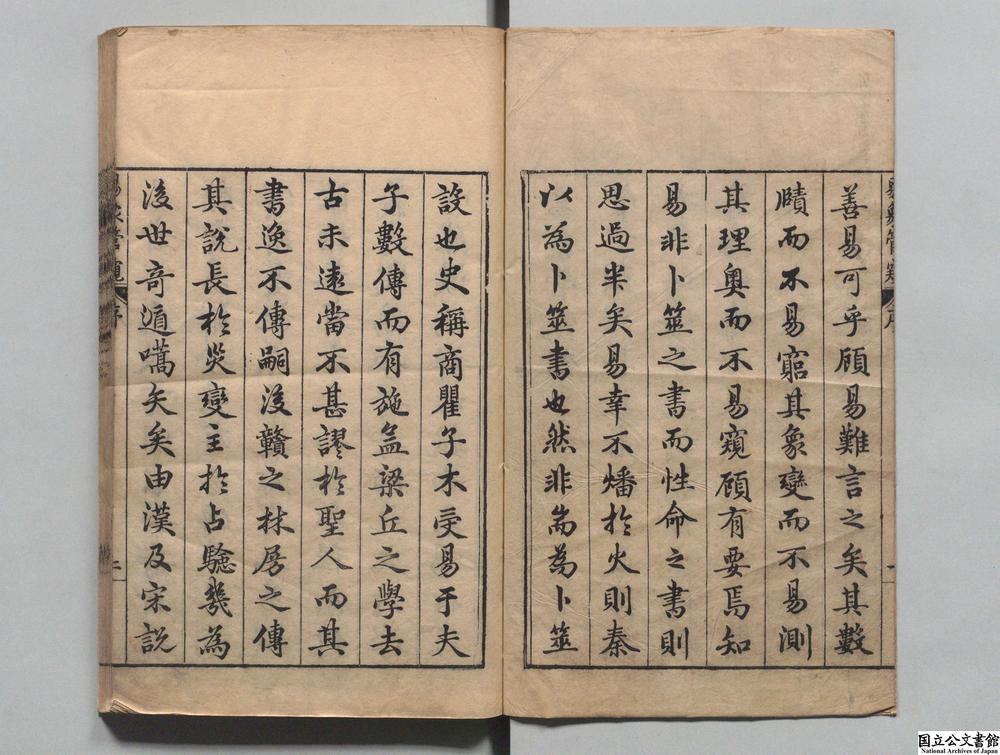 善易可乎顧易難言之矣其數
賾而不易窮其象變而不易測
其理奧而不易窺顧有要焉知
易非卜筮之書而性命之書則
思過半矣易幸不燔於火則秦
以為卜筮書也然非耑為卜筮
設也史稱商瞿子木受易于夫
子數傳而有施孟梁丘之學去
古未遠當不甚謬於聖人而其
書逸不傳嗣後贛之林房之傳
其說長於災變主於占驗幾為
後世奇遁嚆矢矣由漢及宋說
易象管窺 序
一
易象管窺 序
二
国立公文書館
National Archives of Japan